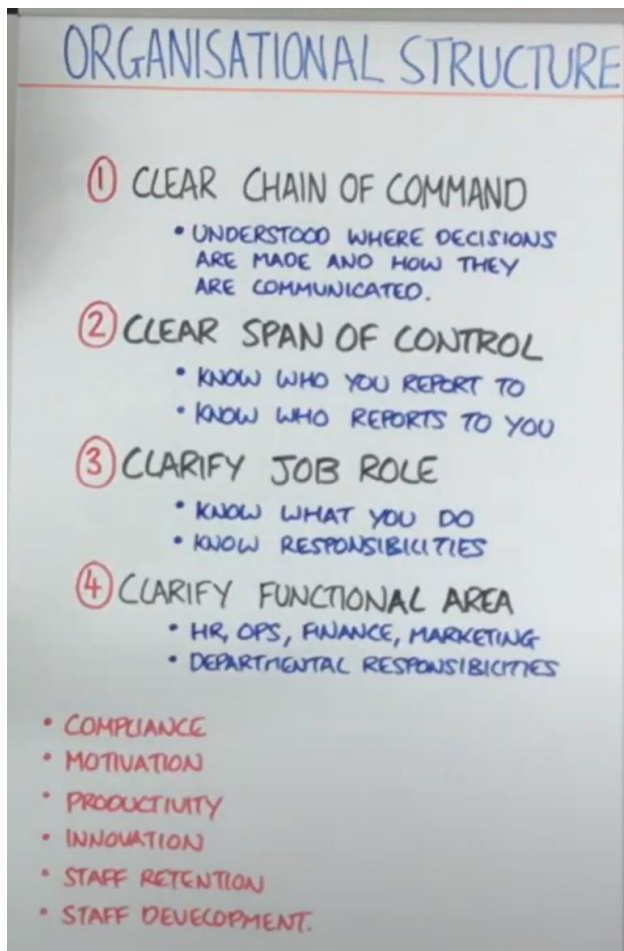 ORGANISATIONAL STRUCTURE
① CLEAR CHAIN OF COMMAND
• UNDERSTOOD WHERE DECISIONS
ARE MADE AND HOW THEY
ARE COMMUNICATED.
② CLEAR SPAN OF CONTROL
• KNOW WHO YOU REPORT TO
• KNOW WHO REPORTS TO YOU
③ CLARIFY JOB ROLE
• KNOW WHAT YOU DO
• KNOW RESPONSIBILITIES
④ CLARIFY FUNCTIONAL AREA
• HR, OPS, FINANCE, MARKETING
• DEPARTMENTAL RESPONSIBILITIES
• COMPLIANCE
• MOTIVATION
• PRODUCTIVITY
• INNOVATION
• STAFF RETENTION
• STAFF DEVELOPMENT.